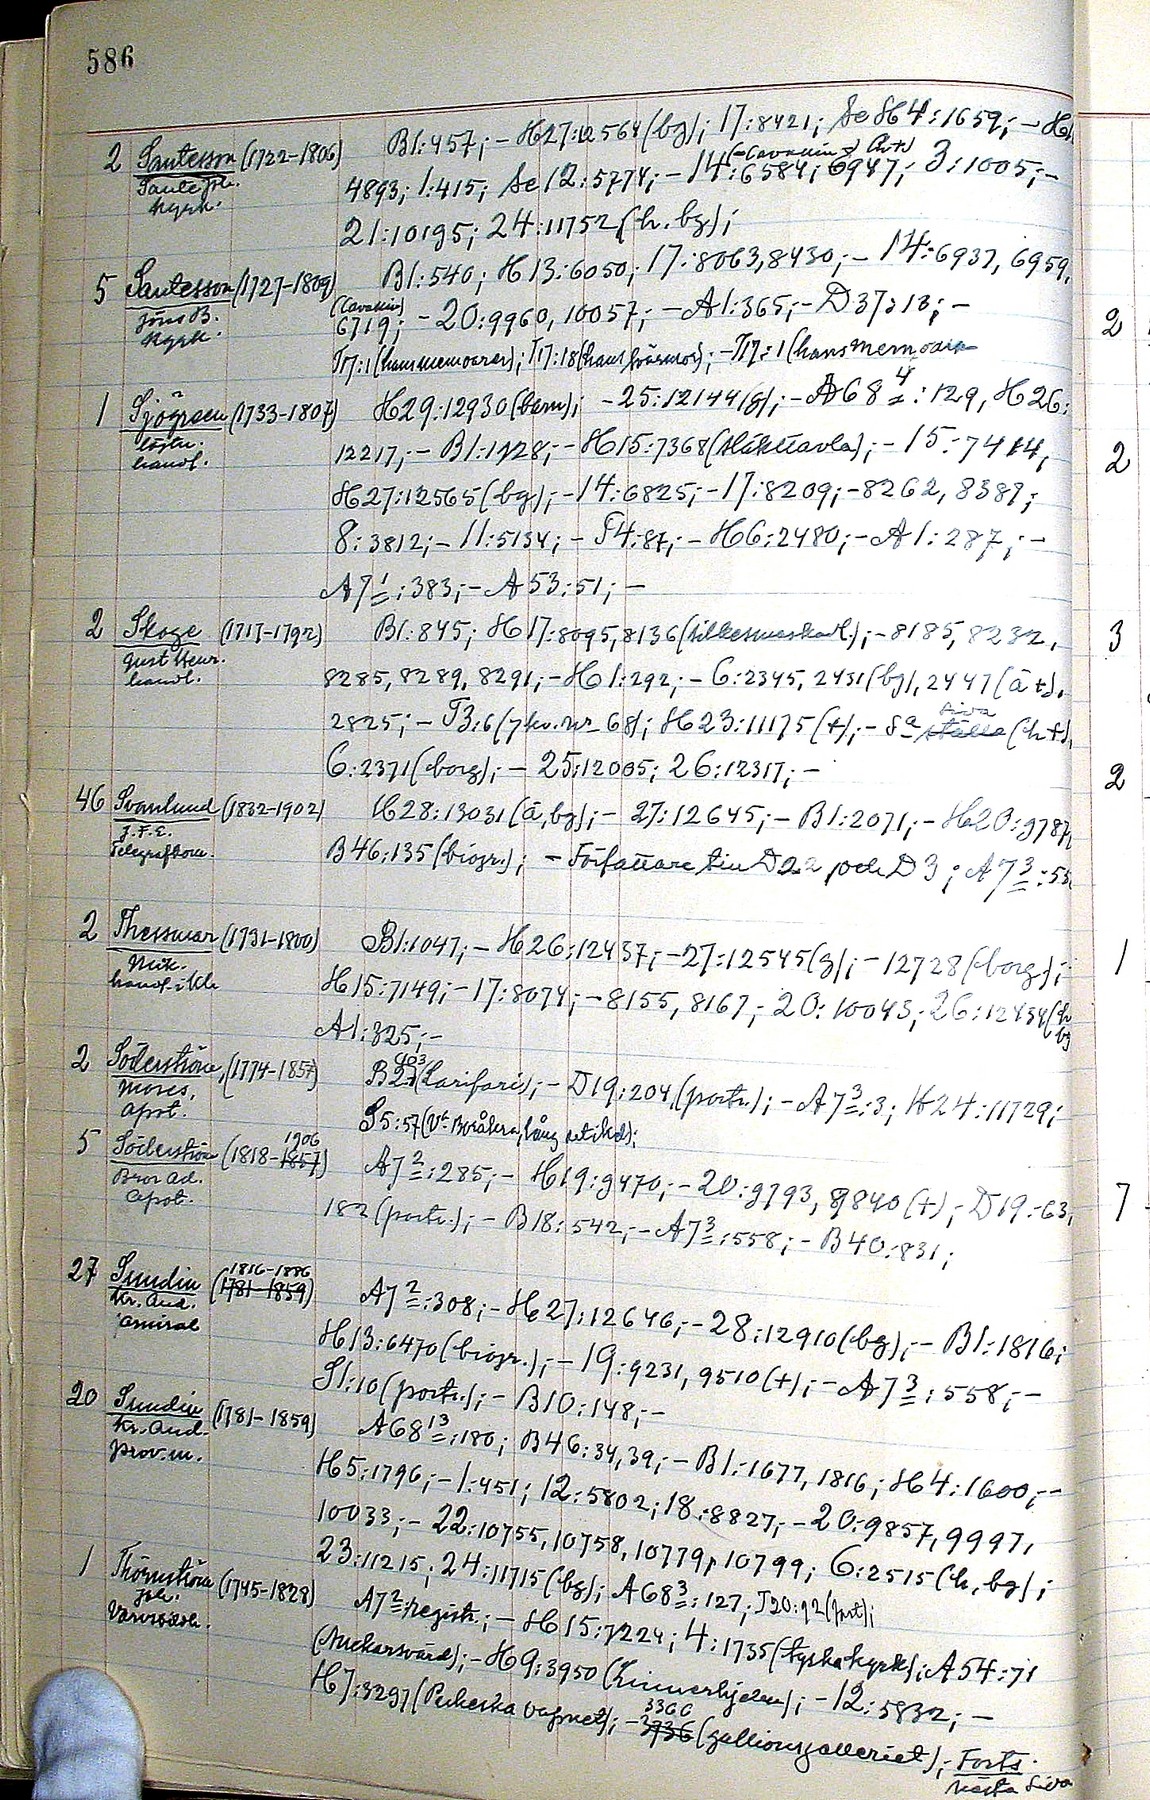 586
B1:457; - H27:12564 (bg); 17:8421; Se H4:1659; - H
2 Santesson (1722-1806) 4893; 1:415; Se 12:5774; - 14:6584; 6947; 3:1005; -
Kyrk. 21:10195; 24:11752 (h. bg);
5 Santesson (1727-1809) B1:540; H13:6050; 17:8063, 8430; - 14:6937, 6959,
Jöns B. 6719; - 20:9960, 10057; - A1:365; - D37:13; -
Kyrk. T17:1 (hans memoarer); T17:18 - T17:1 (hans memoar
1 Sjögreen (1733-1807) H29:12930 (barn); - 25:12144 (g); - A68 4: 129, H26:
handl. 12217; - B1:1728; - H15:7368 (släkttavla); - 15:7414;
H27:12565 (bg); - 14:6825; - 17:8209; - 8262, 8389;
8:3812; - 11:5134; - T4:87; - H6:2480; - A1:287; -
A7 1:383; - A53:51; -
2 Skoge (1717-1792) B1:845; H17:8095, 8136 - 8185, 8232,
Gust Henr.
handl. 8285, 8289, 8291; - H1:292; - 6:2345, 2431 (bg), 2447 (a+),
2825; - T3:6 (7 kv. nr 68); H23:11175 (+); - sa sida ställe (h+),
6:2371 (borg); - 25:12005; 26:12317; -
46 Svanlund (1832-1902) H28:13031 (a, bg); - 27:12645; - B1:2071; - H20:9787,
J.F.E.
Telegrafkom. B46:135 (biogr.); - Författare till D22 och D3; A7 3:55
2 Thesmar (1731-1800) B1:1047; - H26:12437; - 27:12545 (g); - 12728 (borg.);
Nik. H15:7149; - 17:8074; - 8155, 8167; - 20:10045; 26:12434 (h
handl. i Kk bg
A1:325; -
2 Söderström, (1774-1857) B23 403 (Larifari); - D19:204 (portr.); - A7 3:3; H24:11729;
Moses,
apot. S5:57
5 Söderström (1818-1857 1906) A7 2:285; - H19:9470; - 20:9793, 9840 (+); D19:63,
Bror Ad.
apot. 182 (portr.); - B18:542; - A7 3:558; - B40:831;
27 Sundin (1781-1859 1816-1886) A7 2:308; - H27:12646; - 28:12910 (bg); - B1:1816;
Kr. And.
amiral H13:6470 (biogr.); - 19:9231, 9510 (+); - A7 3:558; -
S1:10 (portr.); - B10:148; -
20 Sundin (1781-1859) A68 13:180; B46:34, 39; - B1:1677, 1816; H4:1600; -
Kr. And.
prov.m. H5:1796; - 1:451; 12:5802; 18:8827; - 20:9857, 9997,
10033; - 22:10755, 10758, 10779, 10799; 6:2515 (h, bg);
23:11215; 24:11715 (bg); A68 3:127; J20:92
1 Thörnström (1745-1828) A7 2: registr.; - H15:7224; 4:1735 (tyska kyrk); A54:71
Joh.
Varvsbok. (Ankarsvärd); - H9:3950 - 12:5832; -
H7:3297 (Puckeska vapnet); - 3936 3366 (gallionsgalleriet); Forts.
nästa sida
2
2
3
2
1
7